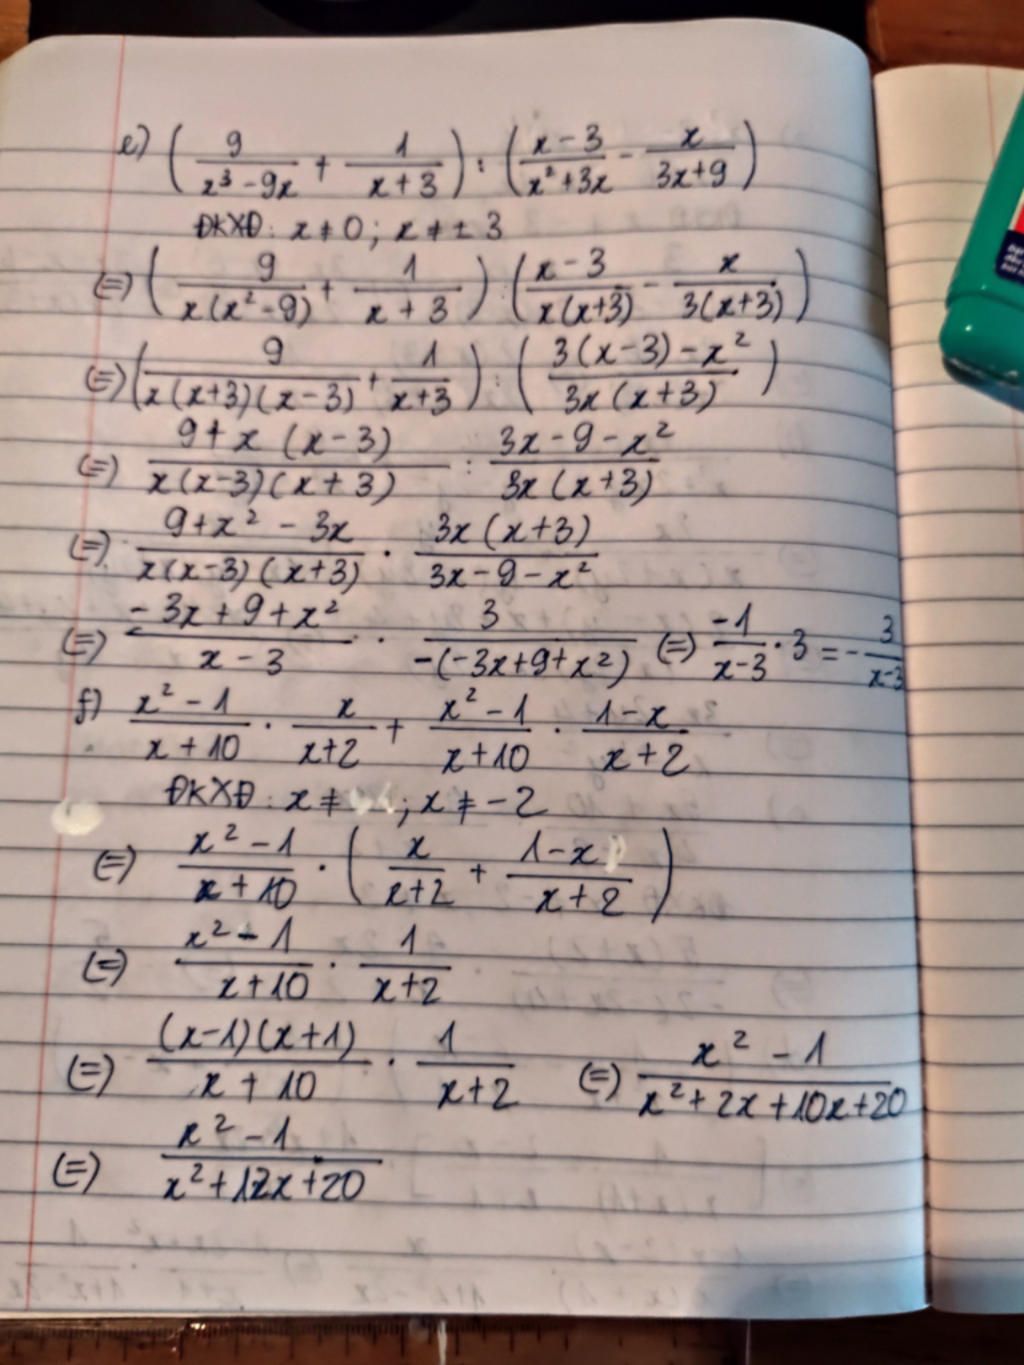 e) (9/(x³ - 9x) + 1/(x+3)) : ((x-3)/(x²+3x) - x/(3x+9))
ĐKXĐ: x ≠ 0; x ≠ ± 3
(=) (9/(x(x²-9)) + 1/(x+3)) : ((x-3)/(x(x+3)) - x/(3(x+3)))
(=) (9/(x(x+3)(x-3)) + 1/(x+3)) : ((3(x-3)-x²)/(3x(x+3)))
(=) (9+x(x-3))/(x(x-3)(x+3)) : (3x-9-x²)/(3x(x+3))
(=) (9+x²-3x)/(x(x-3)(x+3)) · (3x(x+3))/(3x-9-x²)
(=) (-3x+9+x²)/(x-3) · 3/(-(-3x+9+x²)) (=) -1/(x-3) · 3 = -3/(x-3)
f) (x²-1)/(x+10) · x/(x+2) + (x²-1)/(x+10) · (1-x)/(x+2)
ĐKXĐ: x ≠ ; x ≠ -2
(=) (x²-1)/(x+10) · (x/(x+2) + (1-x)/(x+2))
(=) (x²-1)/(x+10) · 1/(x+2)
(=) ((x-1)(x+1))/(x+10) · 1/(x+2) (=) (x²-1)/(x²+2x+10x+20)
(=) (x²-1)/(x²+12x+20)